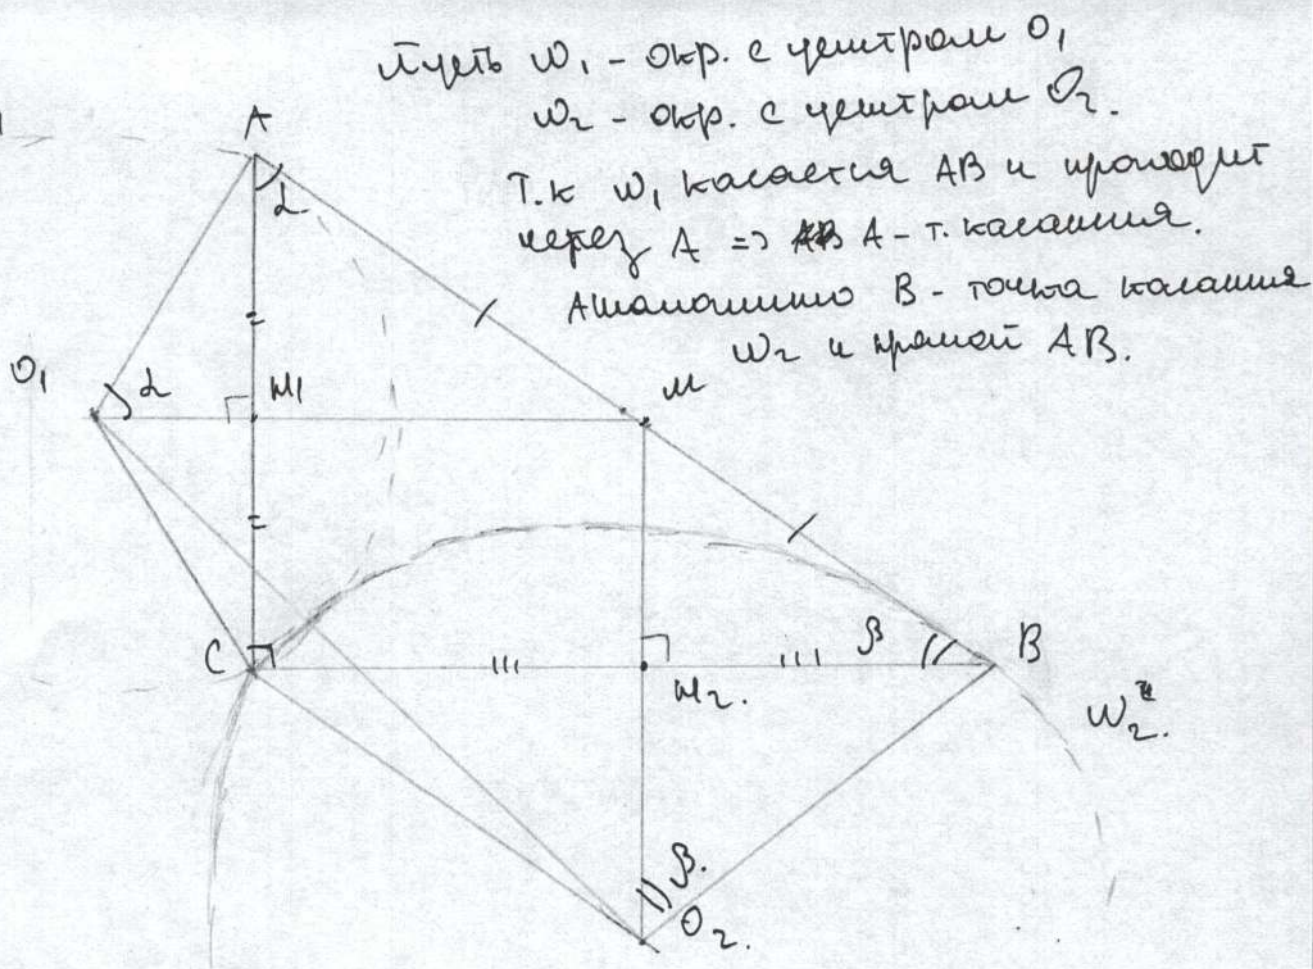 Пусть W₁ - окр. с центром O₁
W₂ - окр. с центром O₂.
Т.к W₁ касается AB и проходит
через A => A - т. касания.
Аналогично B - точка касания
W₂ и прямой AB.
A
α
O₁
α
M₁
M
C
β
B
M₂.
W₂.
β.
O₂.